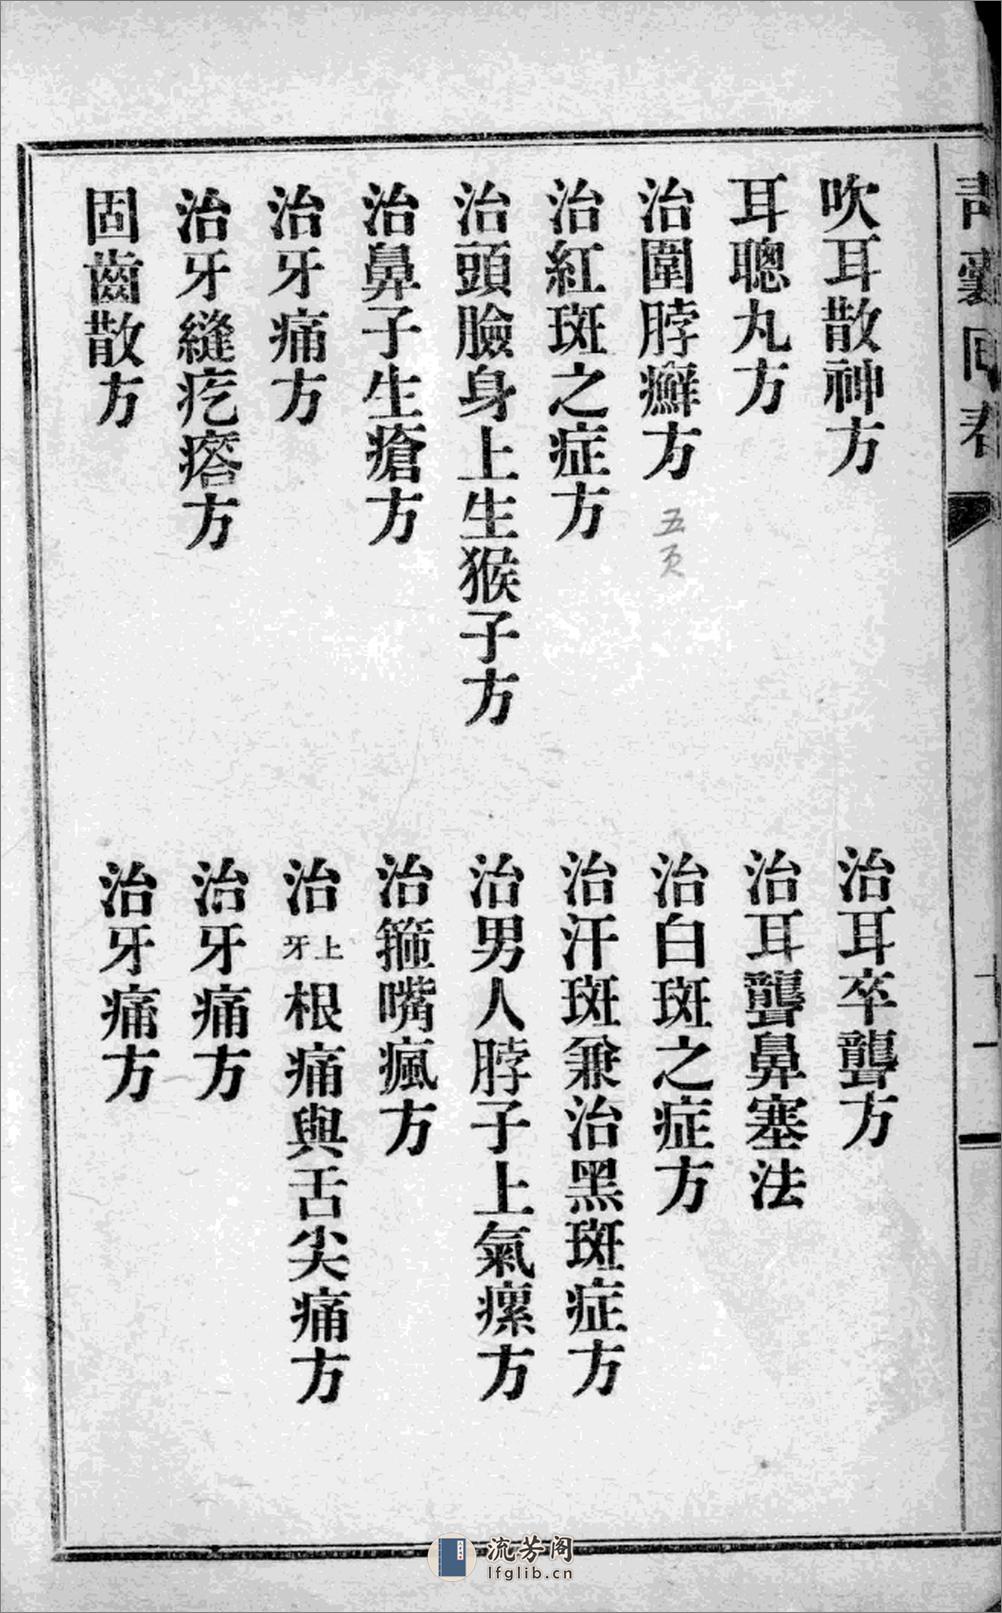 吹耳散神方
治耳卒聾方
耳聰丸方
治耳聾鼻塞法
治圍脖癬方
五页
治白斑之症方
治紅斑之症方
治汗斑兼治黑斑症方
治頭臉身上生猴子方
治男人脖子上氣瘰方
治鼻子生瘡方
治箍嘴瘋方
治牙痛方
治上牙根痛與舌尖痛方
治牙縫疙瘩方
治牙痛方
固齒散方
治牙痛方
十一
流芳阁
lfglib.cn